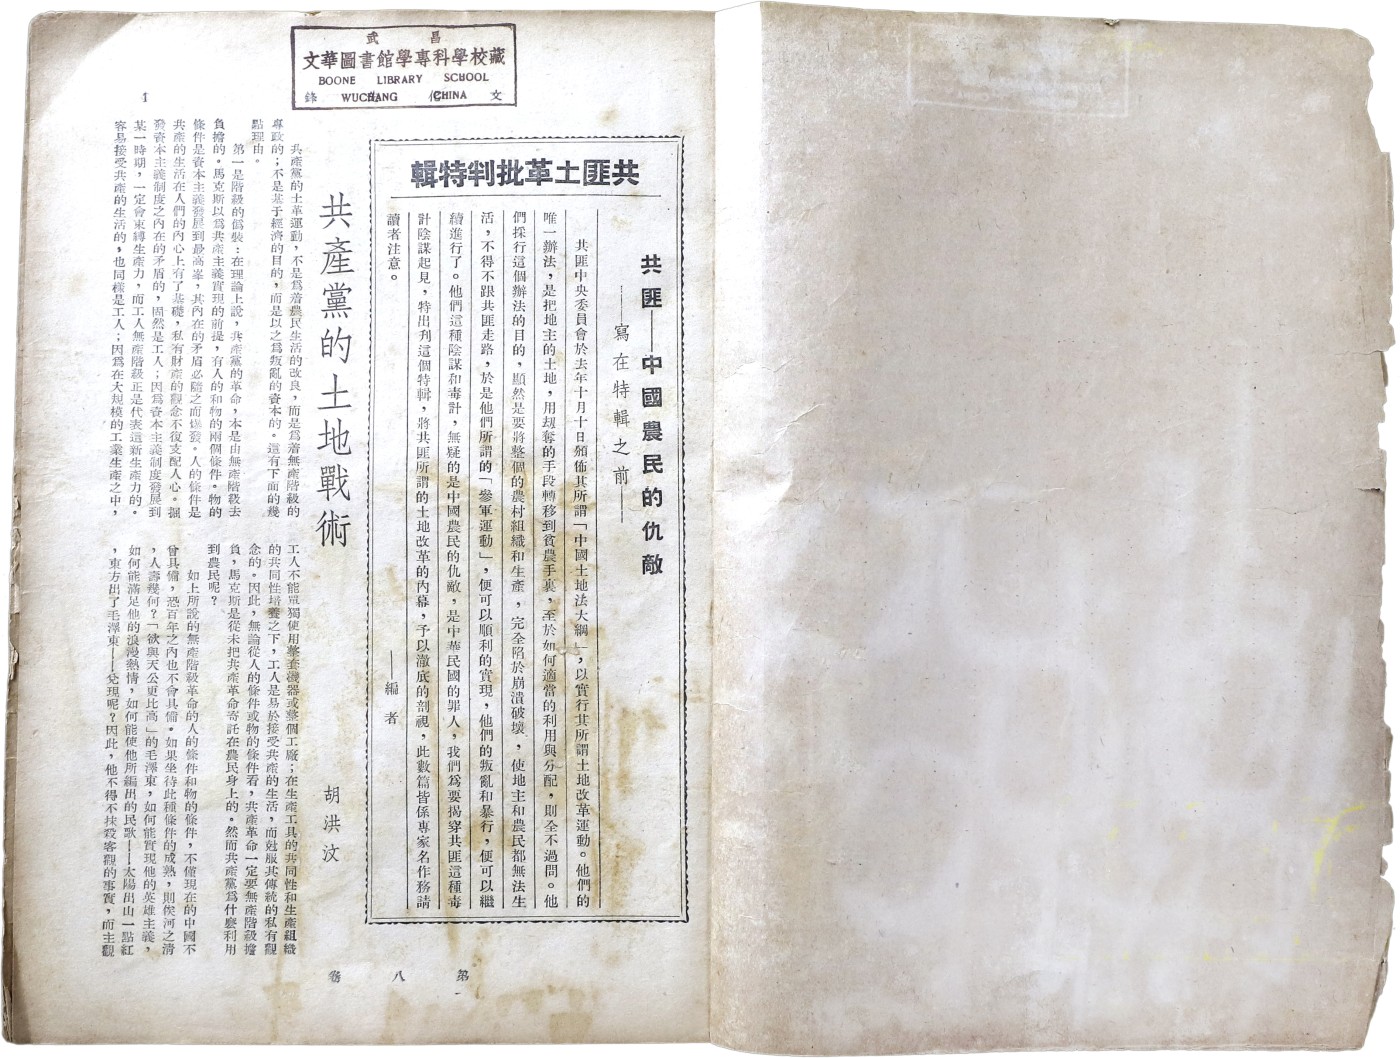 武昌
文華圖書館學專科學校藏
BOONE LIBRARY SCHOOL
WUCHANG CHINA
文化先鋒
1
共匪土革批判特輯
共匪——中國農民的仇敵
——寫在特輯之前——
共匪中央委員會於去年十月十日頒佈其所謂「中國土地法大綱」，以實行其所謂土地改革運動。他們的
唯一辦法，是把地主的土地，用刼奪的手段轉移到貧農手裏，至於如何適當的利用與分配，則全不過問。他
們採行這個辦法的目的，顯然是要將整個的農村組織和生產，完全陷於崩潰破壞，使地主和農民都無法生
活，不得不跟共匪走路，於是他們所謂的「參軍運動」，便可以順利的實現，他們的叛亂和暴行，便可以繼
續進行了。他們這種陰謀和毒計，無疑的是中國農民的仇敵，是中華民國的罪人，我們爲要揭穿共匪這種毒
計陰謀起見，特出刋這個特輯，將共匪所謂的土地改革的內幕，予以澈底的剖視，此數篇皆係專家名作務請
讀者注意。
——編者
共產黨的土地戰術
胡洪汶
共產黨的土革運動，不是爲着農民生活的改良，而是爲着無產階級的
專政的；不是基于經濟的目的，而是以之爲叛亂的資本的。這有下面的幾
點理由。
第一是階級的僞裝：在理論上說，共產黨的革命，本是由無產階級去
負擔的。馬克斯以爲共產主義實現的前提，有人的和物的兩個條件。物的
條件是資本主義發展到最高峯，其內在的矛盾必隨之而爆發。人的條件是
共產的生活在人們的內心上有了基礎，私有財產的觀念不復支配人心。掘
發資本主義制度之內在的矛盾的，固然是工人；因爲資本主義制度發展到
某一時期，一定會束縛生產力，而工人無產階級正是代表這新生產力的。
容易接受共產的生活的，也同樣是工人；因爲在大規模的工業生產之中，
工人不能單獨使用整套機器或整個工廠；在生產工具的共同性和生產組織
的共同性培養之下，工人是易於接受共產的生活，而尅服其傳統的私有觀
念的。因此，無論從人的條件或物的條件看，共產革命一定要無產階級擔
負，馬克斯是從未把共產革命寄託在農民身上的。然而共產黨爲什麽利用
到農民呢？
如上所說的無產階級革命的人的條件和物的條件，不僅現在的中國不
曾具備，恐百年之內也不會具備。如果坐待此種條件的成熟，則俟河之清
，人壽幾何？「欲與天公更比高」的毛澤東，如何能實現他的英雄主義，
如何能滿足他的浪漫熱情，如何能使他所編出的民歌——太陽出山一點紅
，東方出了毛澤東——兌現呢？因此，他不得不抹殺客觀的事實，而主觀
第八卷